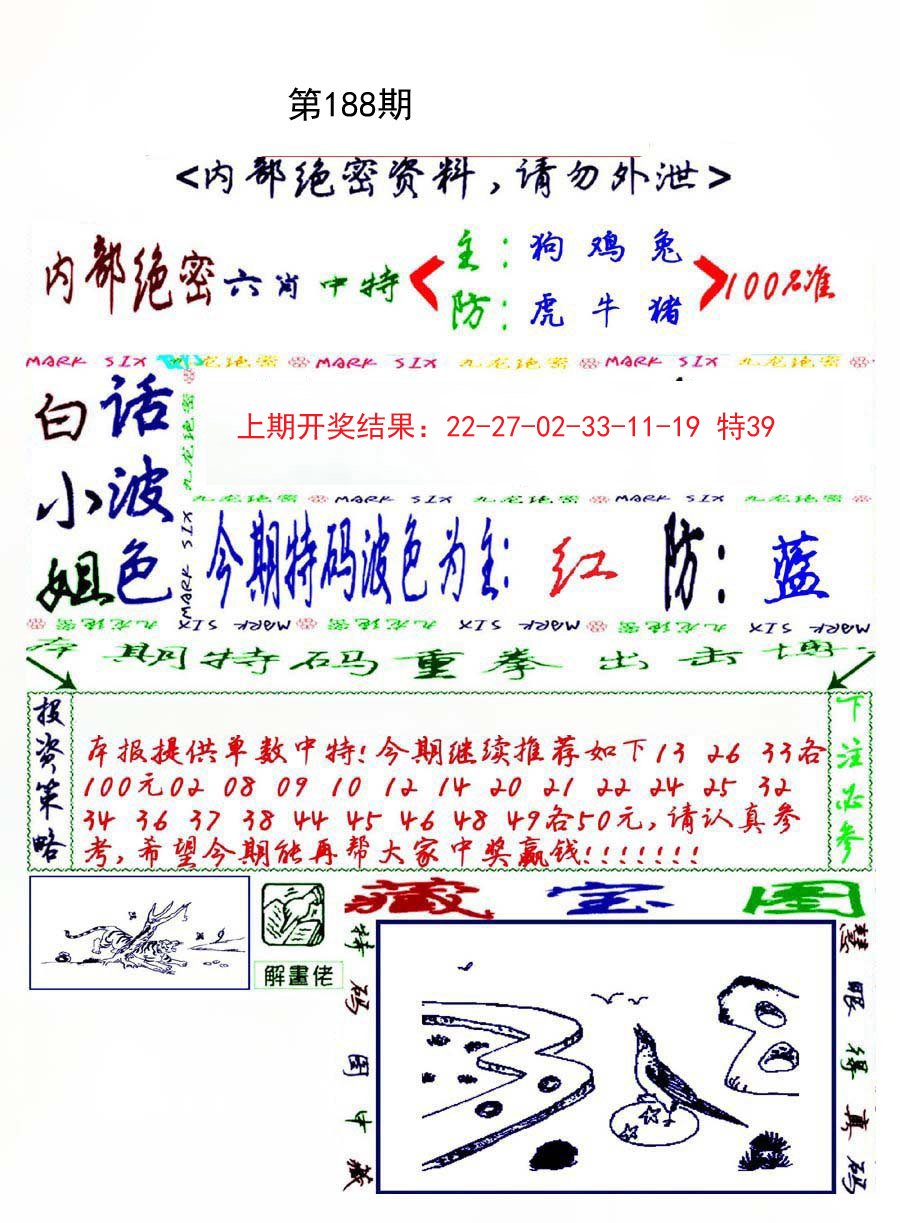 第188期
<内部绝密资料,请勿外泄>
内部绝密六肖中特
主:狗 鸡 兔
防:虎 牛 猪
100%准
MARK SIX 九龙绝密 MARK SIX 九龙绝密 MARK SIX 九龙绝密
白话
小波
姐色
九龙绝密 MARK SIX
上期开奖结果：22-27-02-33-11-19 特39
九龙绝密 MARK SIX 九龙绝密 MARK SIX 九龙绝密
今期特码波色为主:红 防:蓝
九龙绝密 MARK SIX 九龙绝密 MARK SIX 九龙绝密 MARK SIX
本期特码重拳出击博
投资策略
本报提供单数中特!今期继续推荐如下13 26 33各
100元02 08 09 10 12 14 20 21 22 24 25 32
34 36 37 38 44 45 46 48 49各50元,请认真参
考,希望今期能再帮大家中奖赢钱!!!!!!!
下注必参
解畫佬
藏宝图
特码图中藏
慧眼得真码